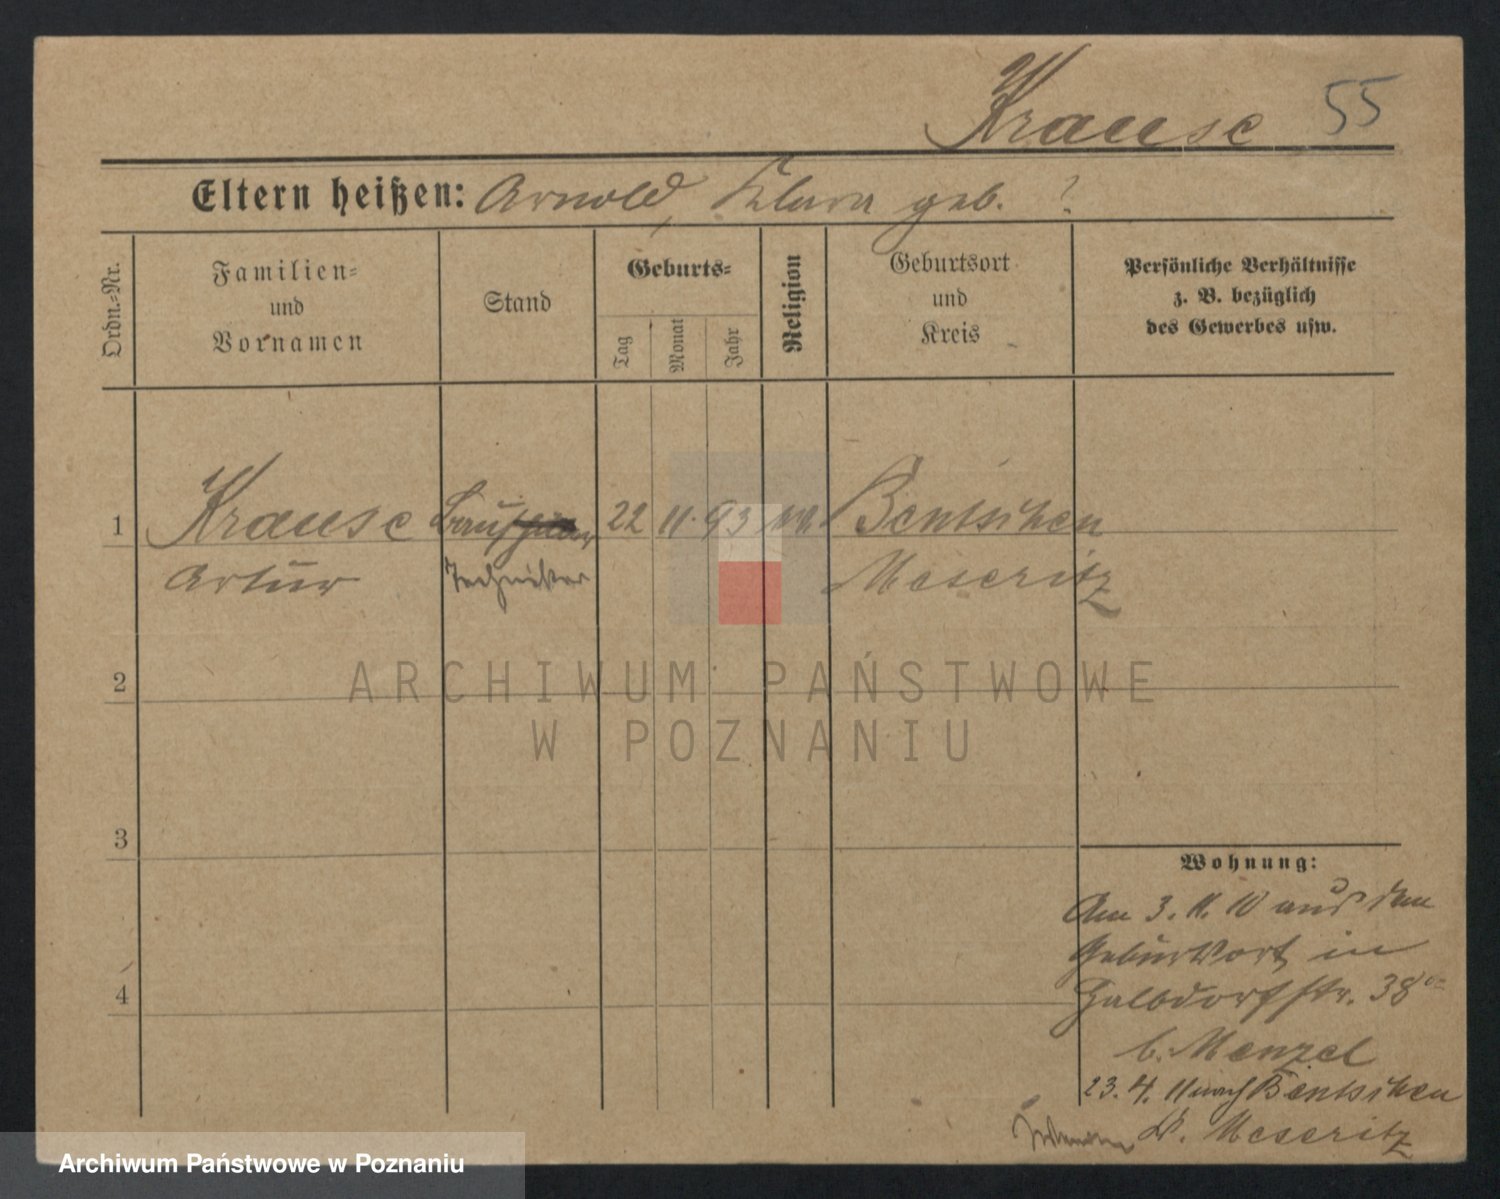 Krause 55
Eltern heißen: Arnold, Klara geb. ?
Ordn.-Nr.
Familien-
und
Vornamen
Stand
Geburts-
Tag
Monat
Jahr
Religion
Geburtsort
und
Kreis
Persönliche Verhältnisse
z. B. bezüglich
des Gewerbes usw.
1 Krause 22 11. 93 Bentschen
Artur Techniker Meseritz
2
3
4
Wohnung:
Am 3. 11. 10 aus dem
Geburtsort in
Halbdorfstr. 38
b. Menzel
23. 4. 11 nach Bentschen
Kr. Meseritz
ARCHIWUM PAŃSTWOWE
W POZNANIU
Archiwum Państwowe w Poznaniu